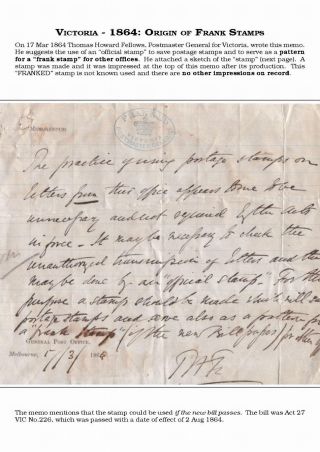 VICTORIA - 1864: ORIGIN OF FRANK STAMPS
On 17 Mar 1864 Thomas Howard Fellows, Postmaster General for Victoria, wrote this memo.
He suggests the use of an "official stamp" to save postage stamps and to serve as a pattern
for a "frank stamp" for other offices. He attached a sketch of the "stamp" (next page). A
stamp was made and it was impressed at the top of this memo after its production. This
"FRANKED" stamp is not known used and there are no other impressions on record.
MEMORANDUM
The practice of using postage stamps on
letters from this office appears to me to be
unnecessary and not required by the acts
in force - It may be necessary to check the
unauthorized transmission of letters and this
may be done by an "official stamp". For this
purpose a stamp should be made which will save
postage stamps and serve also as a pattern for
a "frank stamp" (if the new Bill passes) for other
GENERAL POST OFFICE,
Melbourne, 17/3/1864
The memo mentions that the stamp could be used if the new bill passes. The bill was Act 27
VIC No.226, which was passed with a date of effect of 2 Aug 1864.